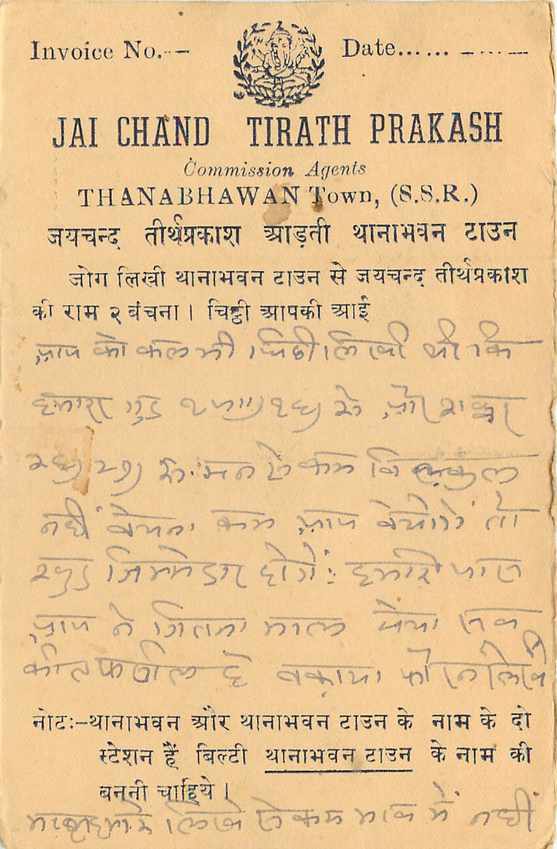 Invoice No.--
Date...... -...--
JAI CHAND TIRATH PRAKASH
Commission Agents
THANABHAWAN Town, (S.S.R.)
जयचन्द तीर्थप्रकाश आड़ती थानाभवन टाउन
जोग लिखी थानाभवन टाउन से जयचन्द तीर्थप्रकाश
की राम २ बंचना । चिट्ठी आपकी आई
आप को कल भी चिठी लिखी थी कि
हमारा गुड़
रु. मन से कम बिलकुल
नहीं बेचना कम आप बेचोगे तो
खुद जिम्मेदार होगें हमारे पास
आप ने जितना माल बेचा
बकाया लिखे
नोट:-थानाभवन और थानाभवन टाउन के नाम के दो
स्टेशन हैं बिल्टी थानाभवन टाउन के नाम की
बननी चाहिये ।
लिखे से कम भाव में नहीं